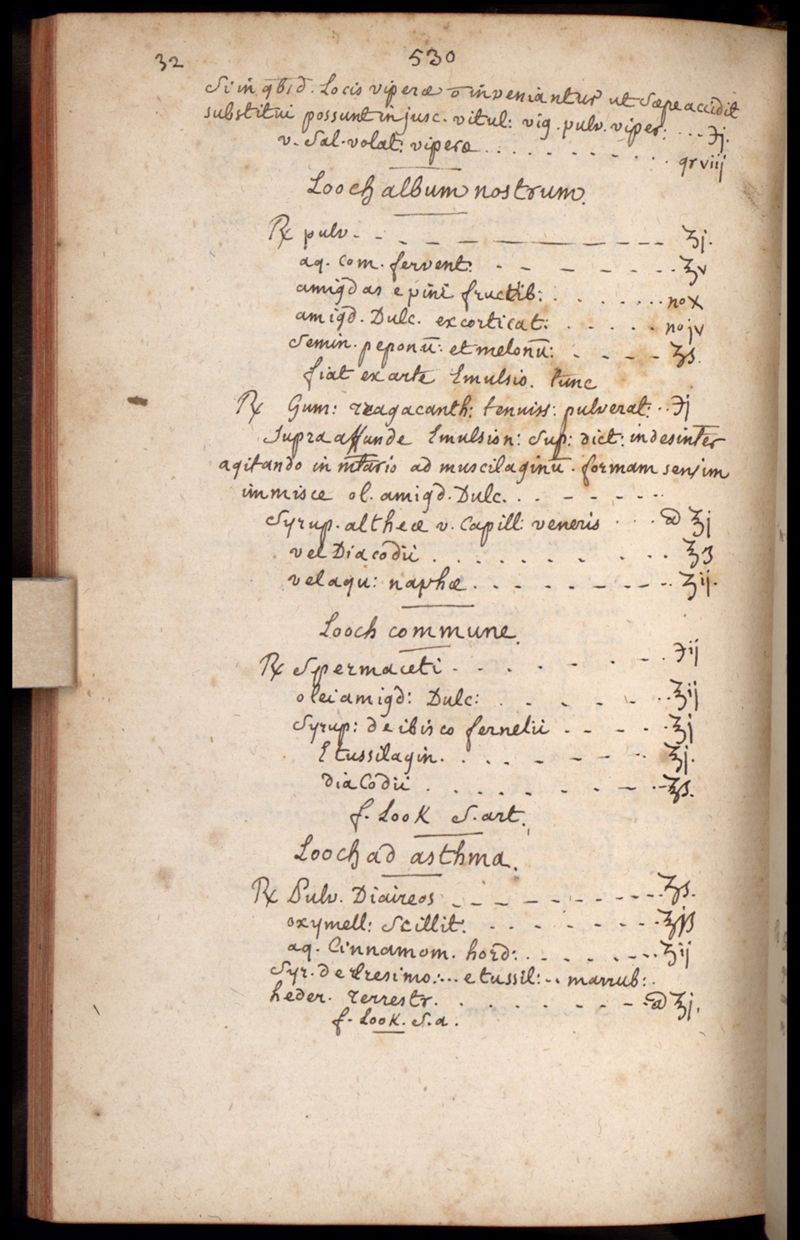 32 530
Si in qbsd. Locis viperæ ō inveniantur ut sæpe accidit
substitui possunt in jusc. vitul: vig. pulv. viper: ... ℈j.
v. Sal. volat: viperæ . . . . . . . . gr viij
Looch album nostrum.
℞ pulv. - - - - - - - ℥j.
aq. com. fervent: - - - - - . . ℥v
amigdas e pini fructib: . . . . . . . no x
amigd. Dulc. excorticat: . . . . . no jv
Semin. peponū. et melonū: - - - - ℥s.
fiat ex arte Emulsio. tunc
℞ Gum: ragacanth: tenuiss: pulverat: . . ℈j
Supra affunde Emulsion: Sup: dict: indesinter
agitando in mtario ad muscilaginū. formam sensim
immisce ol. amigd. Dulc. . . - - - - - .
Syrup. altheæ v. Capill: veneris . . . aā ℥j
vel Diacodii . . . . . . . . . ℥ʒ
vel aqu: naphæ . . - - - - - - - . . ℥ij.
Looch commune.
℞ Spermaceti . - . . . - . - . ℈ij
olei amigd: Dulc: . . . . - . . ℥ij
Syrup: de ibisco fernelii - - - - . ℥j
E tussilagin. . . . - - - - ℥j.
diacodii . . . . . . - . - ℥s.
f. Look S. art.
Looch ad asthma.
℞ Pulv. Diaireos - - - - - - - - - - ʒs.
oxymell: Scillit: - - - - - - - - ℥jß
aq. Cinnamom. hord: . . - - - - . . ℥ij
Syr. de Eresimo: ... e tussil: .. marrub: .
heder. Terrestr. . . . . - - - - aā ℥j.
f. Look. S. a.